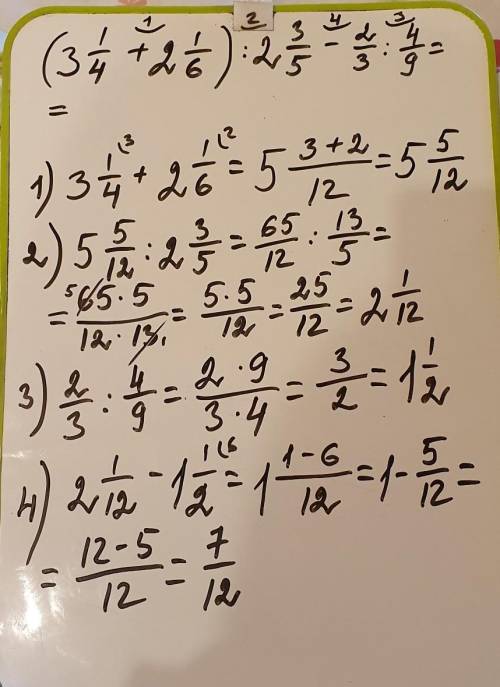 1 2 4 3
(3 1/4 + 2 1/6) : 2 3/5 - 2/3 : 4/9 =
=
1) 3 1/4 (3 + 2 1/6 (2 = 5 (3+2)/12 = 5 5/12
2) 5 5/12 : 2 3/5 = 65/12 : 13/5 =
= 5 65·5/(12·13 1) = 5·5/12 = 25/12 = 2 1/12
3) 2/3 : 4/9 = 2·9/(3·4) = 3/2 = 1 1/2
4) 2 1/12 - 1 1/2 (6 = 1 (1-6)/12 = 1 - 5/12 =
= (12-5)/12 = 7/12